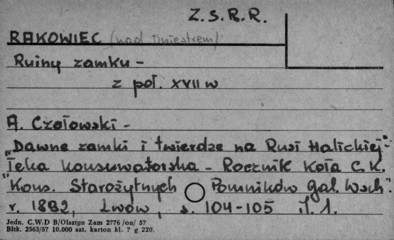 Z.S.R.R.
RAKOWIEC (nad Dniestrem)
Ruiny zamku -
z poł. XVII w
A. Czołowski -
"Dawne zamki i twierdze na Rusi Halickiej"
Teka Konserwatorska - Rocznik Koła C.K.
Kons. Starożytnych Pomników Gal. Wsch.
r. 1892, Lwów, s. 104-105 il. 1.
Jedn. C.W.D B/Olsztyn Zam 2776/on/57
Bltk. 2563/57 10.000 szt. karton kl. 7 g 220.